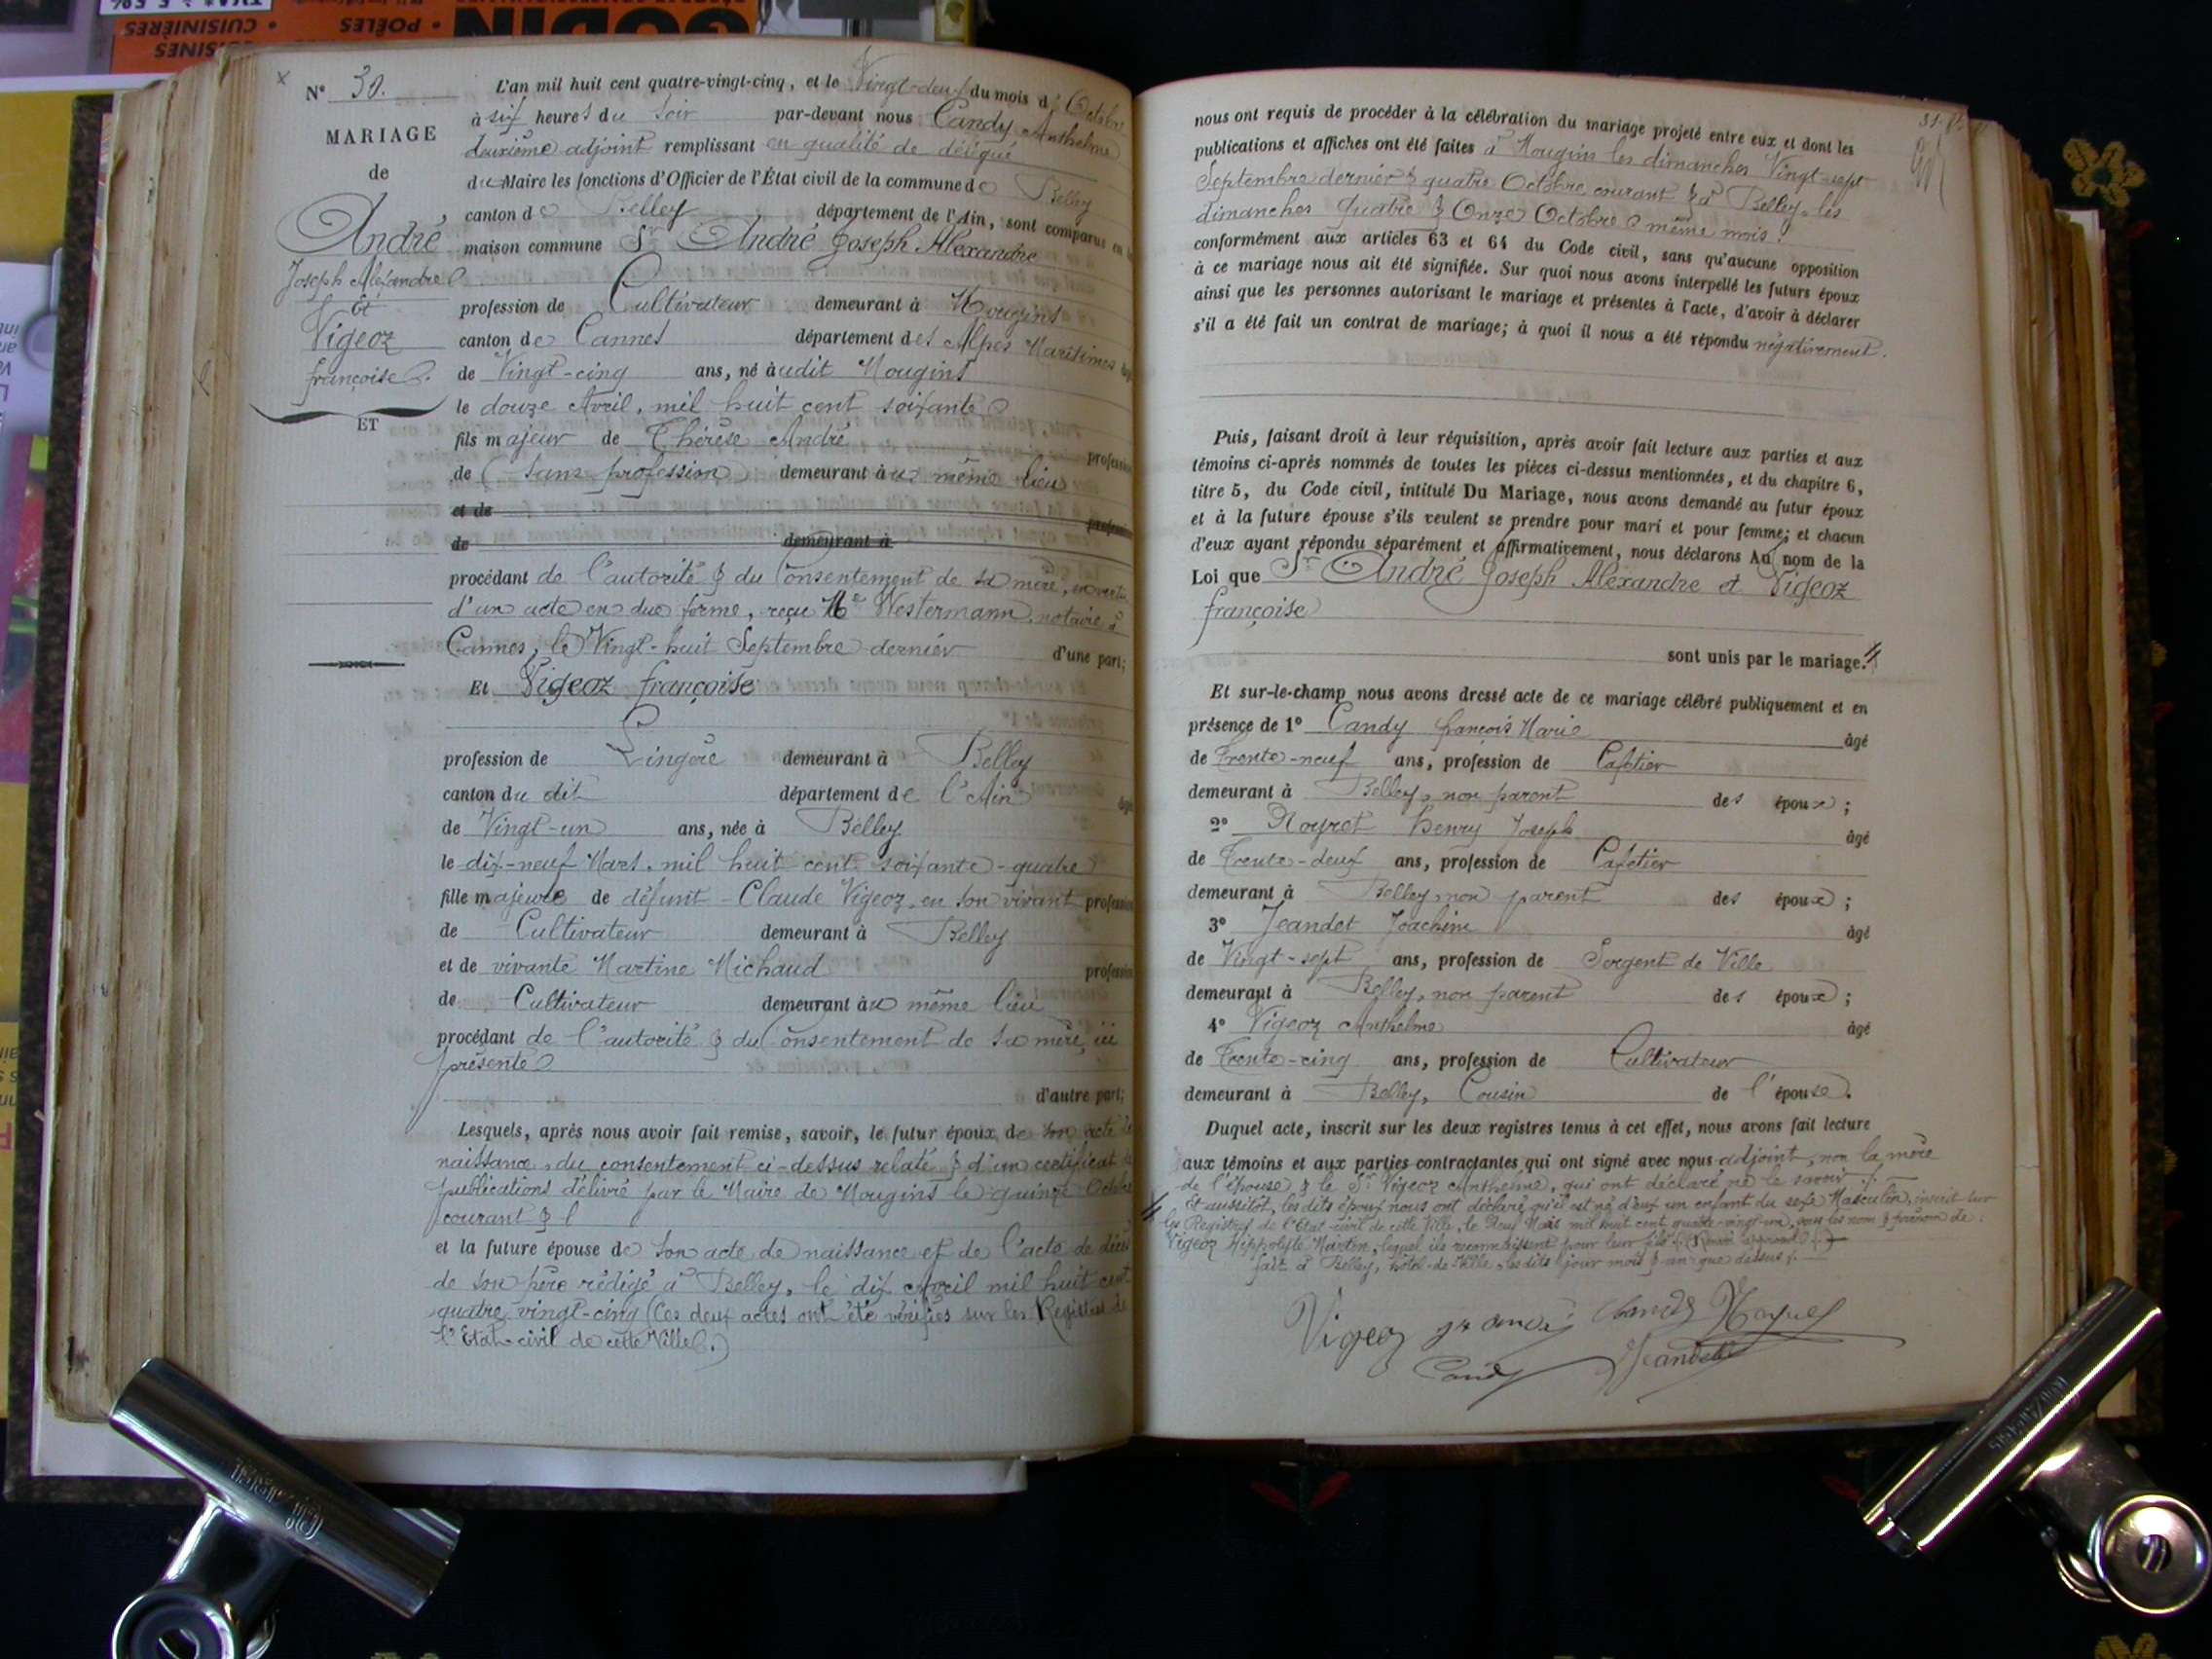 CUISINIÈRES
• POÊLES •
GODIN
N° 30.
MARIAGE
de
André
Joseph Alexandre
Et
Vigeoz
françoise.
ET
L'an mil huit cent quatre-vingt-cinq, et le Vingt-deux du mois d' Octobre
à six heures du soir par-devant nous Candy Anthelme
deuxième adjoint remplissant en qualité de délégué
du Maire les fonctions d'Officier de l'État civil de la commune de Belley
canton de Belley département de l'Ain, sont comparus en la
maison commune Sr André Joseph Alexandre
profession de Cultivateur demeurant à Mougins
canton de Cannes département des Alpes Maritimes âgé
de Vingt-cinq ans, né audit Mougins
le douze Avril, mil huit cent soixante
fils majeur de Thérèse André profession
de (sans profession) demeurant au même lieu
et de profession
de demeurant à
procédant de l'autorité & du Consentement de sa mère, en vertu
d'un acte en due forme, reçu Me Westermann, notaire à
Cannes, le Vingt-huit Septembre dernier d'une part;
Et Vigeoz françoise
profession de Lingère demeurant à Belley
canton du dit département de l'Ain âgée
de Vingt-un ans, née à Belley
le dix-neuf Mars, mil huit cent soixante-quatre
fille majeure de défunt Claude Vigeoz, en son vivant profession
de Cultivateur demeurant à Belley
et de vivante Martine Michaud profession
de Cultivateur demeurant au même lieu
procédant de l'autorité & du Consentement de sa mère, ici
présente
d'autre part;
Lesquels, après nous avoir fait remise, savoir, le futur époux de son acte de
naissance, du consentement ci-dessus relaté & d'un certificat de
publications délivré par le Maire de Mougins le quinze Octobre
courant &
et la future épouse de son acte de naissance et de l'acte de décès
de son père rédigé à Belley, le dix Avril mil huit cent
quatre vingt-cinq (Ces deux actes ont été vérifiés sur les Registres de
l'État-civil de cette Ville.)
nous ont requis de procéder à la célébration du mariage projeté entre eux et dont les
publications et affiches ont été faites à Mougins les dimanches Vingt-sept
Septembre dernier & quatre Octobre courant & à Belley, les
dimanches Quatre & Onze Octobre même mois.
conformément aux articles 63 et 64 du Code civil, sans qu'aucune opposition
à ce mariage nous ait été signifiée. Sur quoi nous avons interpellé les futurs époux
ainsi que les personnes autorisant le mariage et présentes à l'acte, d'avoir à déclarer
s'il a été fait un contrat de mariage; à quoi il nous a été répondu négativement.
Puis, faisant droit à leur réquisition, après avoir fait lecture aux parties et aux
témoins ci-après nommés de toutes les pièces ci-dessus mentionnées, et du chapitre 6,
titre 5, du Code civil, intitulé Du Mariage, nous avons demandé au futur époux
et à la future épouse s'ils veulent se prendre pour mari et pour femme; et chacun
d'eux ayant répondu séparément et affirmativement, nous déclarons Au nom de la
Loi que Sr André Joseph Alexandre et Vigeoz
françoise
sont unis par le mariage.
Et sur-le-champ nous avons dressé acte de ce mariage célébré publiquement et en
présence de 1° Candy françois Marie âgé
de Trente-neuf ans, profession de Cafetier
demeurant à Belley, non parent des époux;
2° Royret Henry Joseph âgé
de Trente-deux ans, profession de Cafetier
demeurant à Belley, non parent des époux;
3° Jeandet Joachim âgé
de Vingt-sept ans, profession de Sergent de Ville
demeurant à Belley, non parent des époux;
4° Vigeoz Anthelme âgé
de Trente-cinq ans, profession de Cultivateur
demeurant à Belley, Cousin de l'épouse.
Duquel acte, inscrit sur les deux registres tenus à cet effet, nous avons fait lecture
aux témoins et aux parties contractantes qui ont signé avec nous adjoint, non la mère
de l'épouse & le Sr Vigeoz Anthelme, qui ont déclaré ne le savoir.
Et aussitôt, les dits époux nous ont déclaré qu'il est né d'eux un enfant du sexe Masculin, inscrit sur
les Registres de l'État-civil de cette Ville, le Neuf Mars mil huit cent quatre-vingt-un, sous les nom & prénom de:
Vigeoz Hippolyte Martin, lequel ils reconnaissent pour leur fils.
fait à Belley, hôtel-de-Ville, les dits jour mois & an que dessus.
Vigeoz
Candy
Jeandet